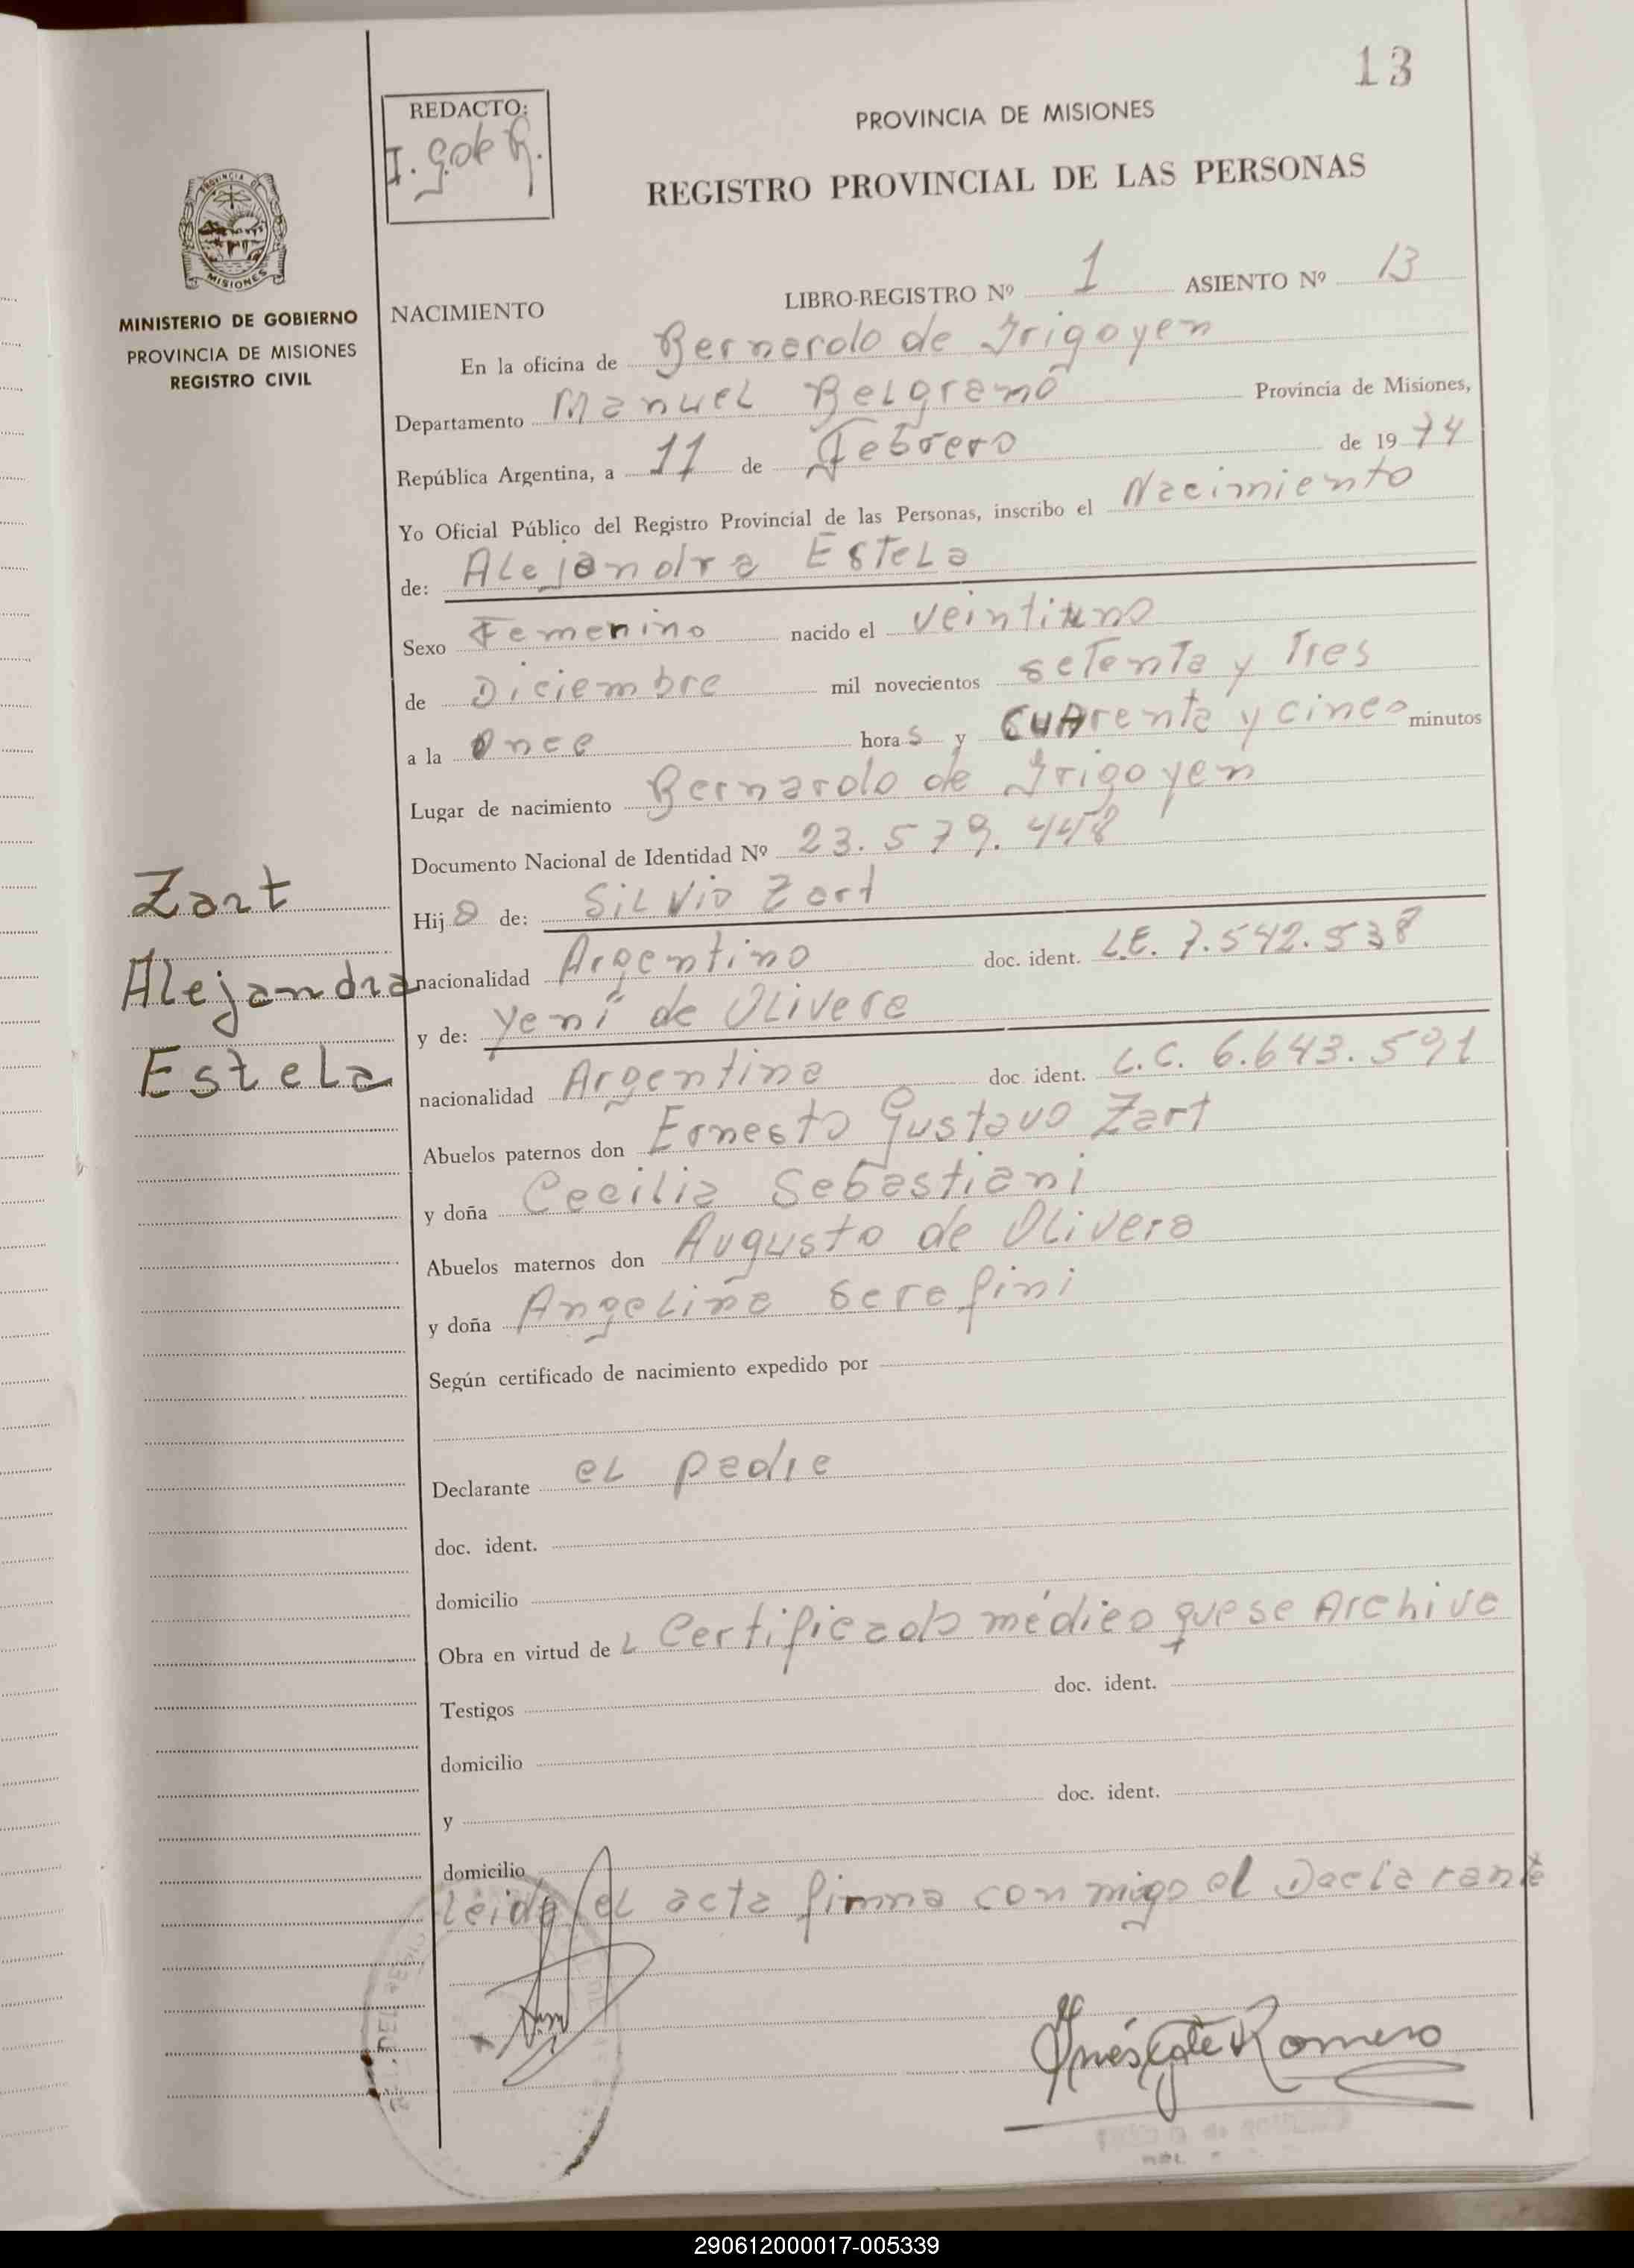 13
REDACTO:
I. G. de R.
PROVINCIA DE MISIONES
REGISTRO PROVINCIAL DE LAS PERSONAS
MISIONES
MINISTERIO DE GOBIERNO
PROVINCIA DE MISIONES
REGISTRO CIVIL
NACIMIENTO LIBRO-REGISTRO Nº 1 ASIENTO Nº 13
En la oficina de Bernardo de Irigoyen
Departamento Manuel Belgrano Provincia de Misiones,
República Argentina, a 11 de Febrero de 1974
Yo Oficial Público del Registro Provincial de las Personas, inscribo el Nacimiento
de: Alejandra Estela
Sexo Femenino nacido el veintiuno
de Diciembre mil novecientos setenta y Tres
a la once horas y cuarenta y cinco minutos
Lugar de nacimiento Bernardo de Irigoyen
Documento Nacional de Identidad Nº 23.579.448
Hija de: Silvio Zart
nacionalidad Argentino doc. ident. L.E. 7.542.538
y de: Yeni de Olivera
nacionalidad Argentina doc. ident. L.C. 6.643.591
Abuelos paternos don Ernesto Gustavo Zart
y doña Cecilia Sebastiani
Abuelos maternos don Augusto de Olivera
y doña Angelina Serafini
Según certificado de nacimiento expedido por
Declarante el padre
doc. ident.
domicilio
Obra en virtud de L Certificado médico que se Archiva
Testigos doc. ident.
domicilio
y doc. ident.
domicilio
Leida el acta firma con migo el Declarante
Zart
Alejandra
Estela
Inés G. de Romero
290612000017-005339